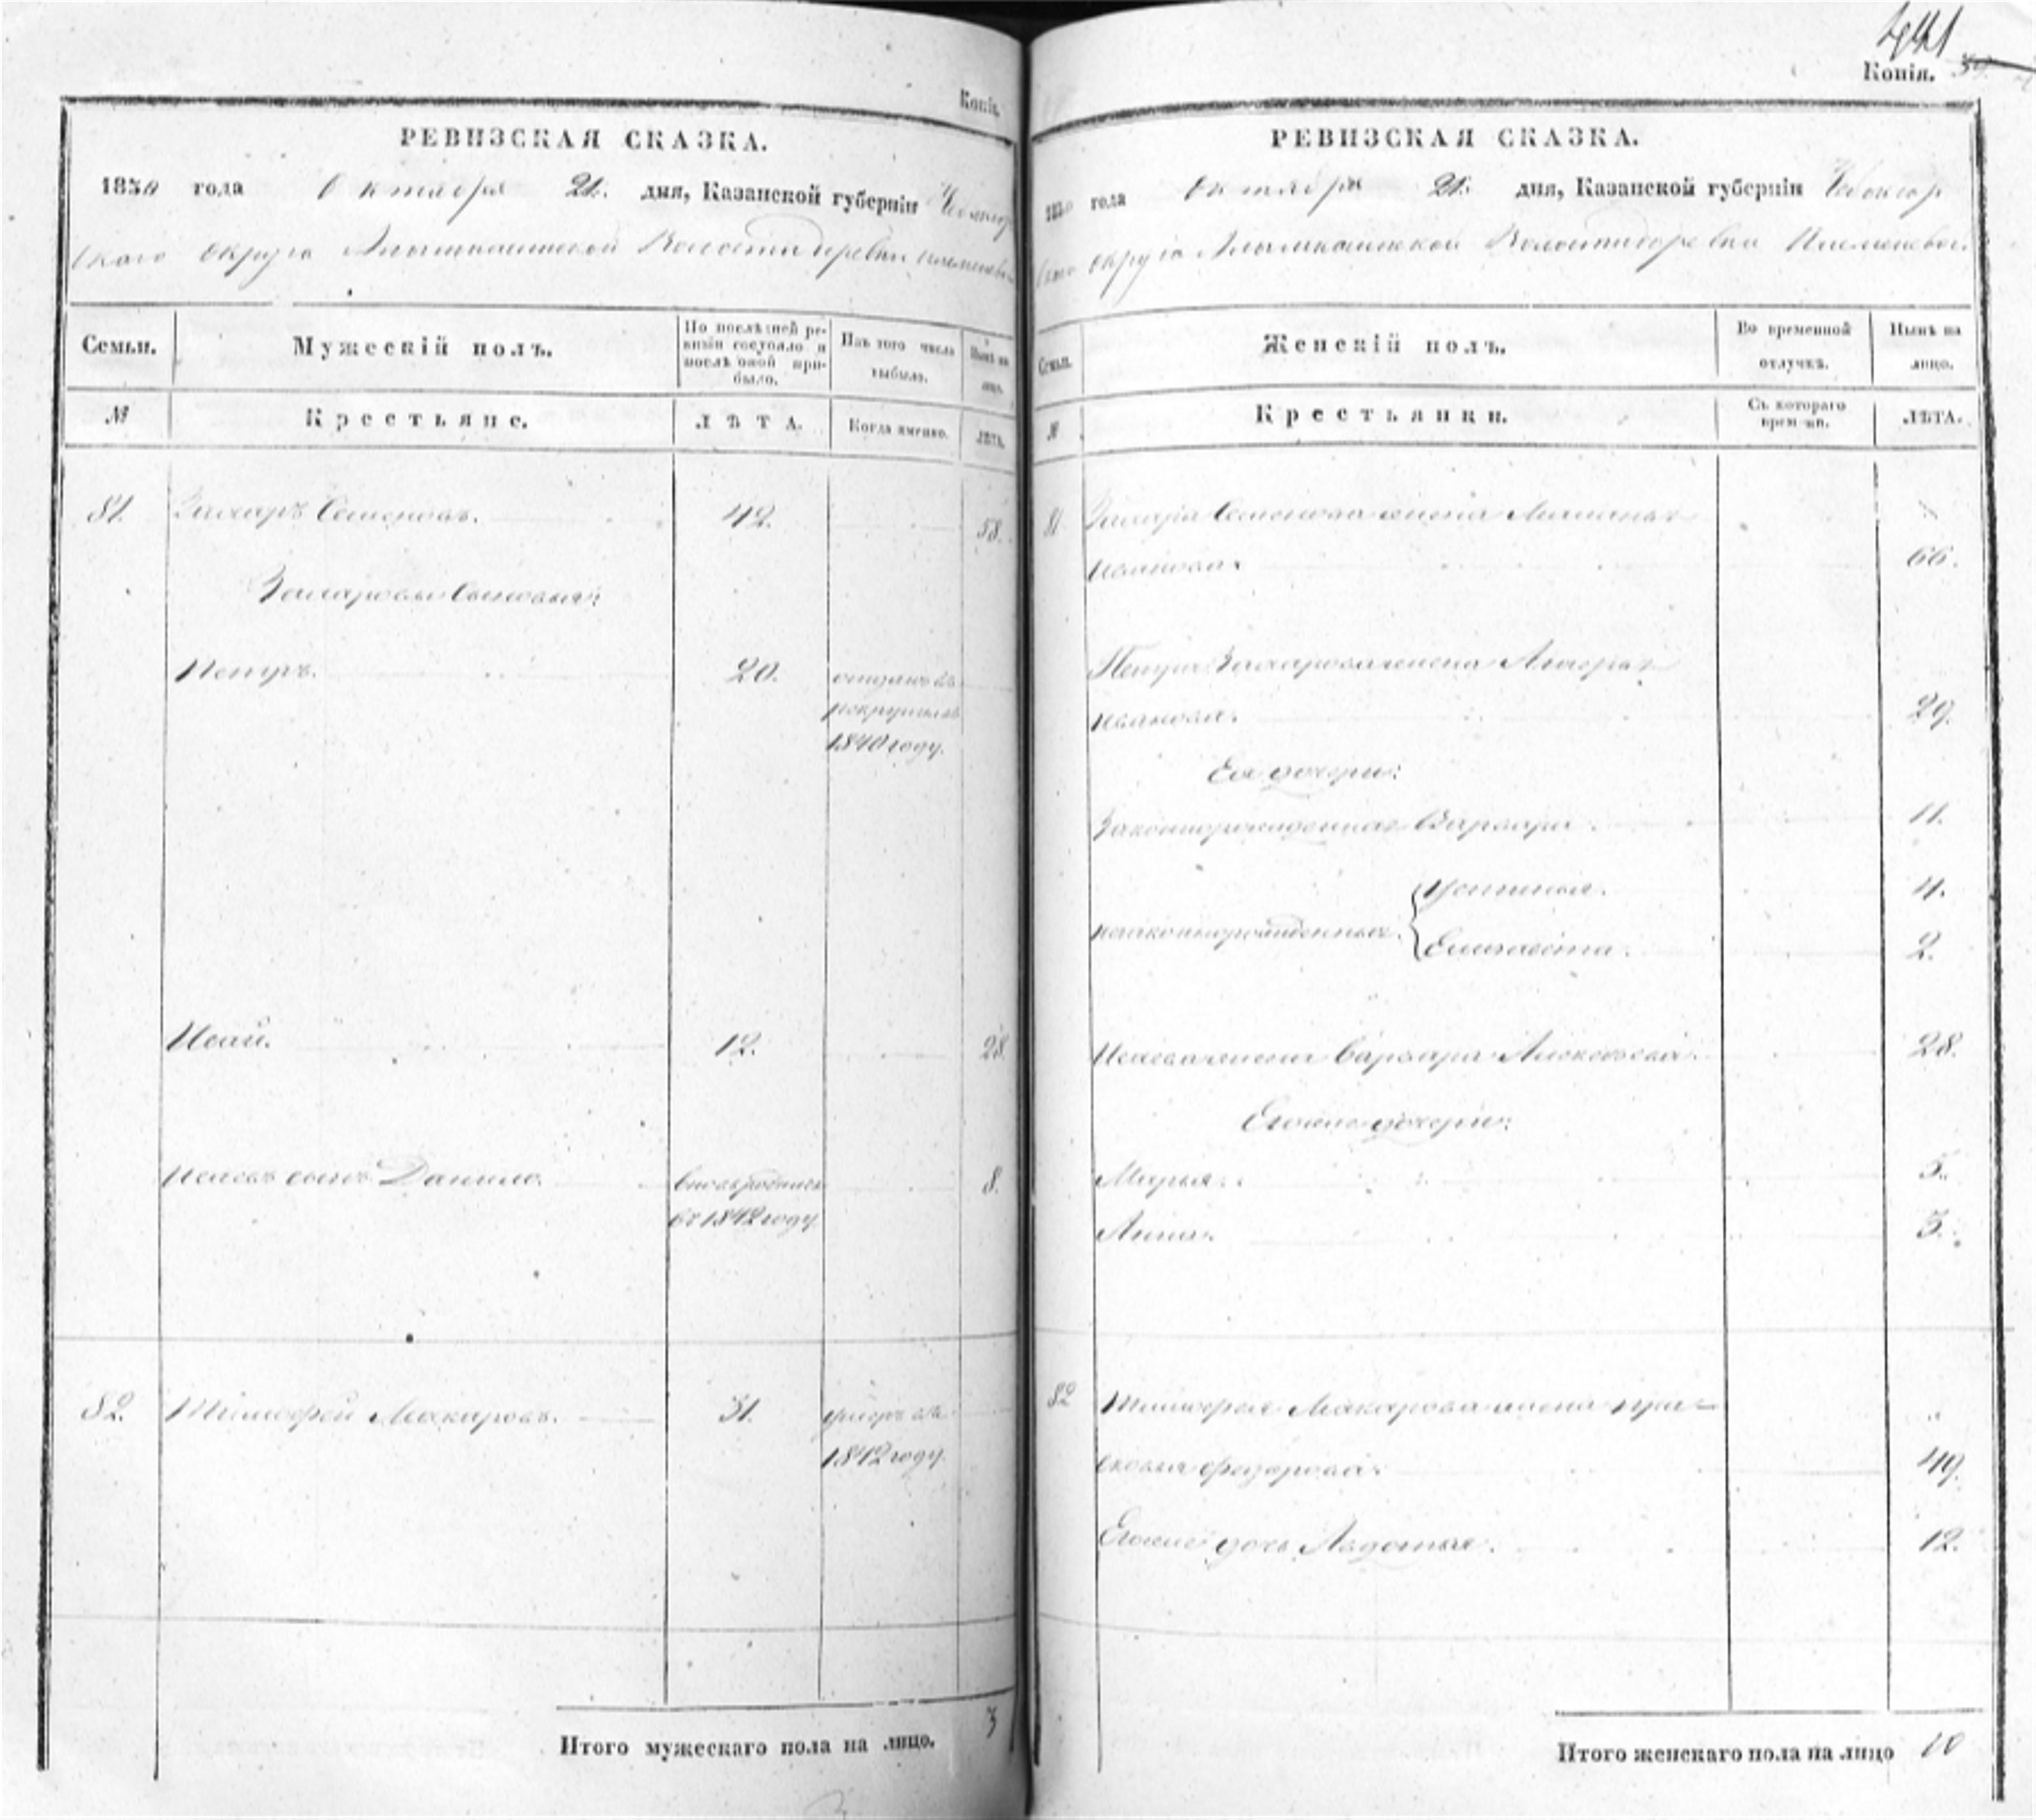 Копія.
РЕВИЗСКАЯ СКАЗКА.
1850 года Октября 21. дня, Казанской губерніи Чебоксар
скаго Округа Волости деревни
Семьи.
Мужескій полъ.
По послѣдней ре-
визіи состояло и
послѣ оной при-
было.
Изъ того числа
выбыло.
Нынѣ на
лицо.
№
Крестьяне.
ЛѢТА.
Когда именно.
ЛѢТА.
81. Захаръ Семеновъ. 42. 58.
Захаровы сыновья:
Петръ. 20. отданъ въ
рекруты въ
1840 году.
Исай. 12. 28.
Исаевъ сынъ Данило. вновь родился 8.
въ 1842 году.
82. Тимофей Макаровъ. 31. умеръ въ
1842 году.
Итого мужескаго пола на лицо. 3
Копія.
РЕВИЗСКАЯ СКАЗКА.
1850 года Октября 21. дня, Казанской губерніи Чебоксар
скаго Округа Волости деревни
Семьи.
Женскій полъ.
Во временной
отлучкѣ.
Нынѣ на
лицо.
№
Крестьянки.
Съ котораго
времени.
ЛѢТА.
81 Захара Семенова жена
Иванова. 66.
Петра Захарова жена
Иванова. 29.
Ея дочери:
Законнорожденная Варвара. 11.
незаконнорожденныя. Устинья. 4.
Елизавета. 2.
Исаева жена Варвара Алексѣева. 28.
Его же дочери:
Марья. 5.
Анна. 3.
82 Тимофея Макарова жена Пра-
сковья Федорова. 49.
Его же дочь Авдотья. 12.
Итого женскаго пола на лицо 10